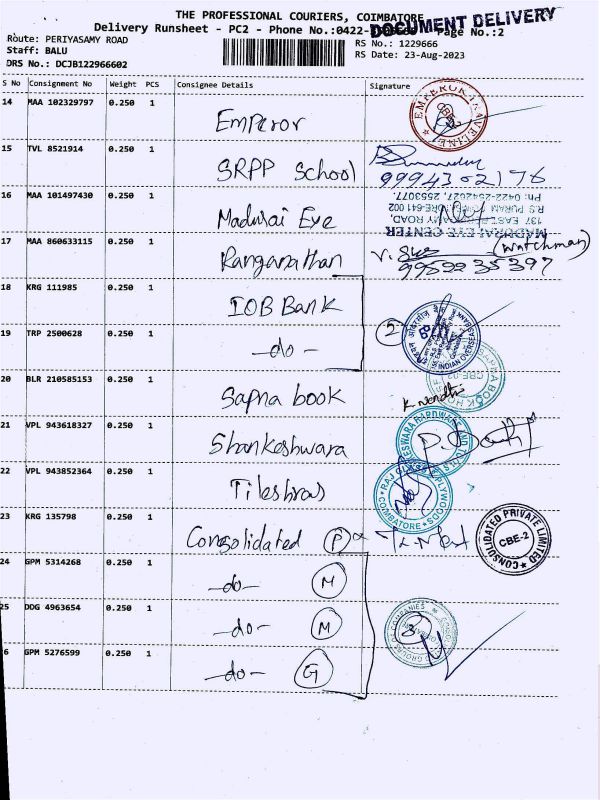 THE PROFESSIONAL COURIERS, COIMBATORE
Delivery Runsheet - PC2 - Phone No.:0422- Page No.:2
DOCUMENT DELIVERY
Route: PERIYASAMY ROAD
Staff: BALU
DRS No.: DCJB122966602
RS No.: 1229666
RS Date: 23-Aug-2023
S No Consignment No Weight PCS Consignee Details Signature
14 MAA 102329797 0.250 1 Emperor
15 TVL 8521914 0.250 1 SRPP School
9994302178
16 MAA 101497430 0.250 1 Madurai Eye
MADURAI EYE CENTER
137 EAST PERIYASAMY ROAD,
R.S PURAM, COIMBATORE-641 002
Ph: 0422-2542627, 2553077.
17 MAA 860633115 0.250 1 Ranganathan
(Watchman)
18 KRG 111985 0.250 1 IOB Bank
19 TRP 2500628 0.250 1 -do-
2
20 BLR 210585153 0.250 1 Sapna book
SAPNA BOOK HOUSE
21 VPL 943618327 0.250 1 Shankeshwara
22 VPL 943852364 0.250 1
COIMBATORE
23 KRG 135798 0.250 1 Consolidated P
CONSOLIDATED PRIVATE LIMITED
CBE-2
24 GPM 5314268 0.250 1 -do- M
25 DDG 4963654 0.250 1 -do- M
3
26 GPM 5276599 0.250 1 -do- G